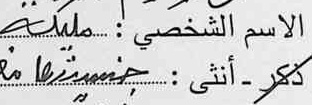 الاسم الشخصي : مليكة
ذكر - أنثى : جنسيتها